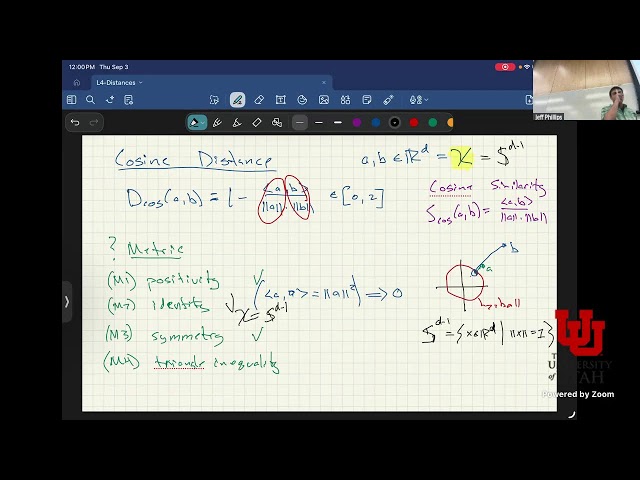 12:00PM Thu Sep 3
L4-Distances
Jeff Phillips
Cosine Distance
a, b ∈ ℝ^d = X = S^{d-1}
D_cos(a,b) = 1 - <a,b> / ||a||·||b|| ∈ [0,2]
Cosine Similarity
S_cos(a,b) = <a,b> / ||a||·||b||
? Metric
(M1) positivity ✓
(M2) identity ✓ (<a,a> = ||a||²) ⟹ 0
X = S^{d-1}
(M3) symmetry ✓
(M4) triangle inequality
b
a
ball
S^{d-1} = {x∈ℝ^d | ||x||=1}
UNIVERSITY
of UTAH
Powered by Zoom